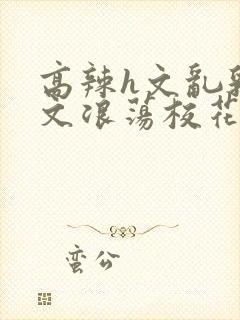 高辣h文乱
文浪荡校花
蛮公